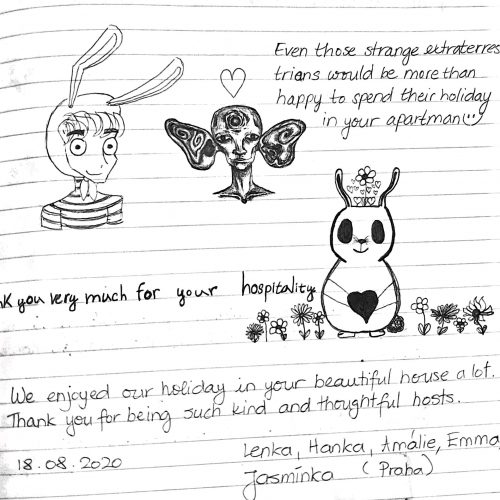 Even those strange extraterres
trians would be more than
happy to spend their holiday
in your apartman :)
nk you very much for your hospitality
We enjoyed our holiday in your beautiful house a lot.
Thank you for being such kind and thoughtful hosts.
18.08.2020
Lenka, Hanka, Amálie, Emma,
Jasmínka (Praha)